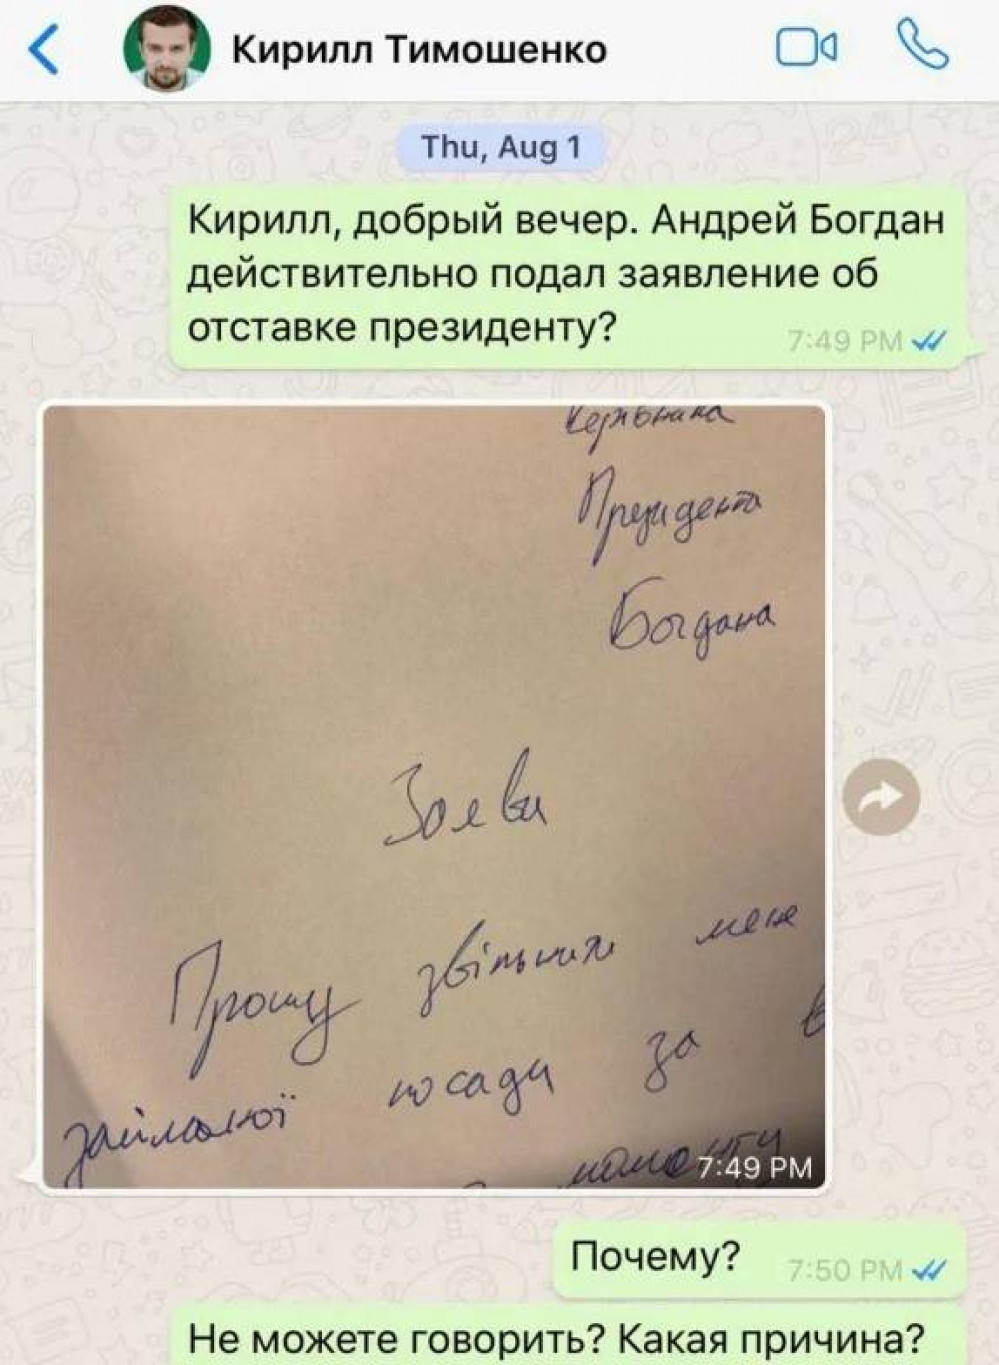 Кирилл Тимошенко
Thu, Aug 1
Кирилл, добрый вечер. Андрей Богдан
действительно подал заявление об
отставке президенту?
7:49 PM
Керівника
Президента
Богдана
Заява
Прошу звільнити мене
займаної посади за в
моменту
7:49 PM
Почему?
7:50 PM
Не можете говорить? Какая причина?